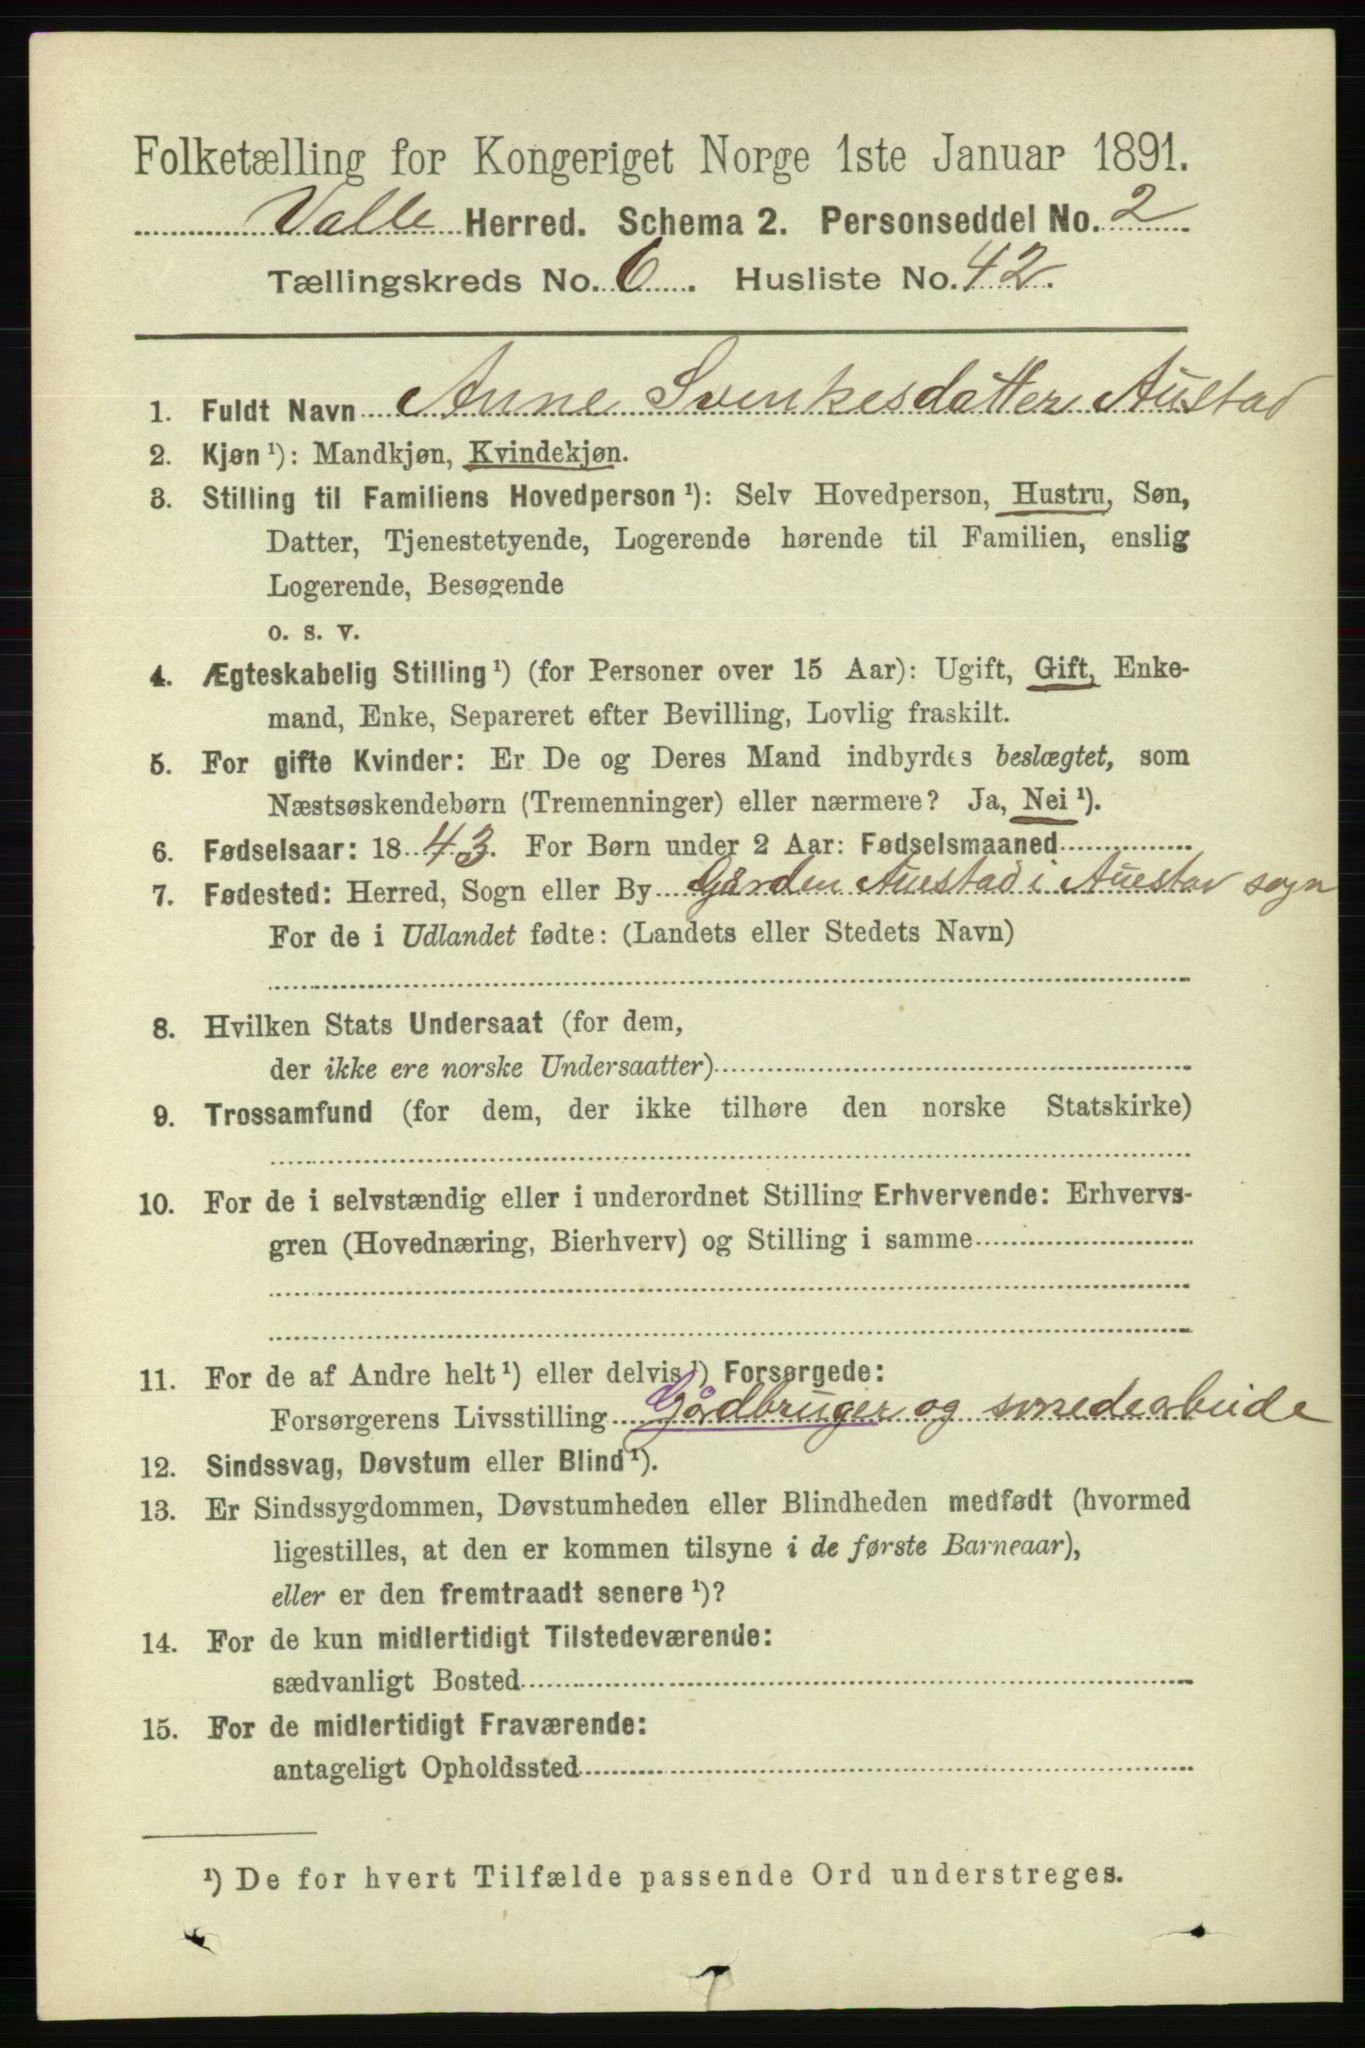 Folketælling for Kongeriget Norge 1ste Januar 1891.
Valle Herred. Schema 2. Personseddel No. 2
Tællingskreds No. 6. Husliste No. 42.
1. Fuldt Navn Anne Svenkesdatter Austad
2. Kjøn ¹): Mandkjøn, Kvindekjøn.
3. Stilling til Familiens Hovedperson ¹): Selv Hovedperson, Hustru, Søn,
Datter, Tjenestetyende, Logerende hørende til Familien, enslig
Logerende, Besøgende
o. s. v.
4. Ægteskabelig Stilling ¹) (for Personer over 15 Aar): Ugift, Gift, Enke-
mand, Enke, Separeret efter Bevilling, Lovlig fraskilt.
5. For gifte Kvinder: Er De og Deres Mand indbyrdes beslægtet, som
Næstsøskendebørn (Tremenninger) eller nærmere? Ja, Nei ¹).
6. Fødselsaar: 1843. For Børn under 2 Aar: Fødselsmaaned
7. Fødested: Herred, Sogn eller By Gården Austad i Austad sogn
For de i Udlandet fødte: (Landets eller Stedets Navn)
8. Hvilken Stats Undersaat (for dem,
der ikke ere norske Undersaatter)
9. Trossamfund (for dem, der ikke tilhøre den norske Statskirke)
10. For de i selvstændig eller i underordnet Stilling Erhvervende: Erhvervs-
gren (Hovednæring, Bierhverv) og Stilling i samme
11. For de af Andre helt ¹) eller delvis ¹) Forsørgede:
Forsørgerens Livsstilling Gårdbruger og smedearbeide
12. Sindssvag, Døvstum eller Blind ¹).
13. Er Sindssygdommen, Døvstumheden eller Blindheden medfødt (hvormed
ligestilles, at den er kommen tilsyne i de første Barneaar),
eller er den fremtraadt senere ¹)?
14. For de kun midlertidigt Tilstedeværende:
sædvanligt Bosted
15. For de midlertidigt Fraværende:
antageligt Opholdssted
¹) De for hvert Tilfælde passende Ord understreges.